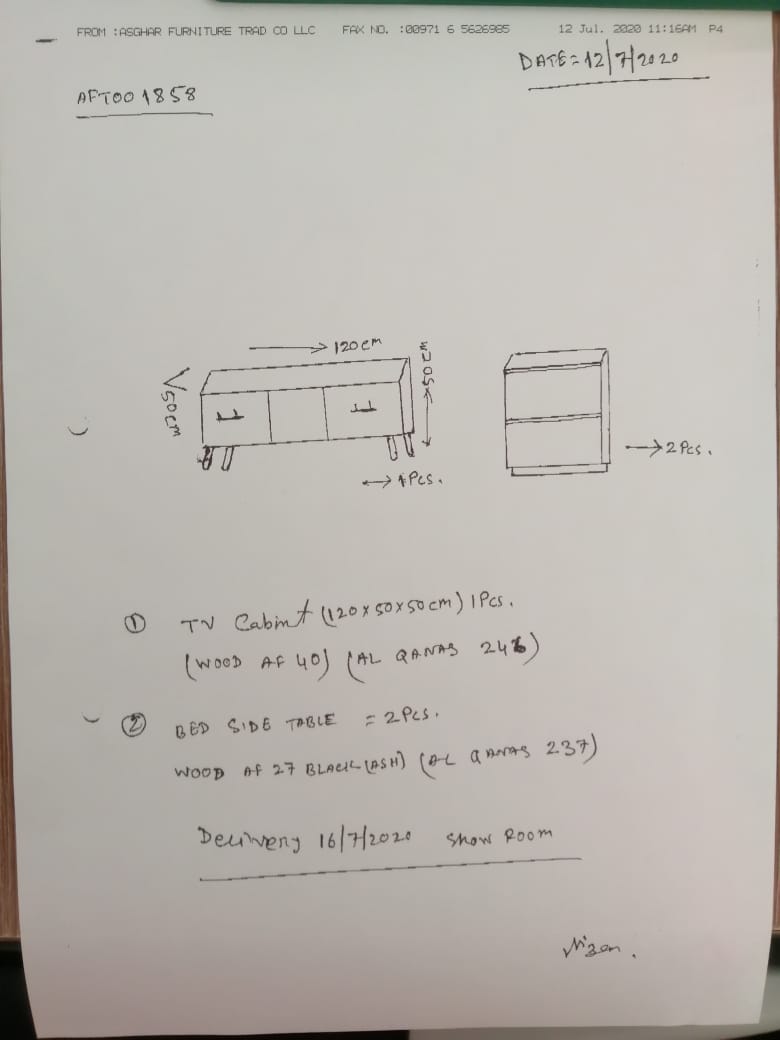 FROM :ASGHAR FURNITURE TRAD CO LLC FAX NO. :00971 6 5626985 12 Jul. 2020 11:16AM P4
DATE=12/7/2020
AFT001858
120cm
50cm
50cm
1Pcs.
2Pcs.
① TV Cabint (120x50x50cm) 1Pcs.
(WOOD AF 40) (AL QANAS 246)
② BED SIDE TABLE = 2Pcs.
WOOD AF 27 BLACK (ASH) (AL QANAS 237)
Delivery 16/7/2020 Show Room
Nizam.